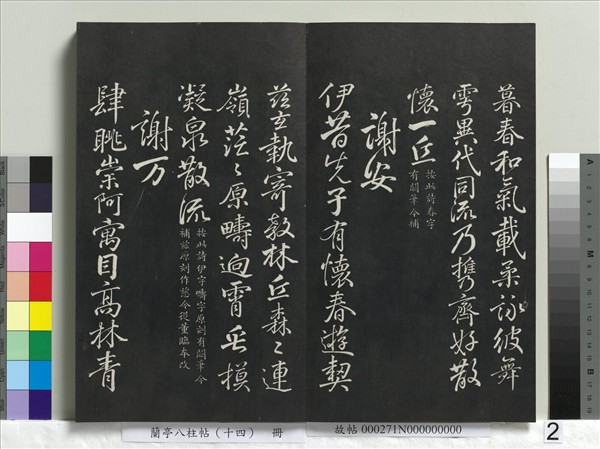 暮春和氣載柔詠彼舞
雩異代同流乃携齊好散
懷一丘
按此詩春字
有闕筆今補
謝安
伊昔先子有懷春遊契
茲言執寄敖林丘森〻連
嶺茫〻原疇迥霄垂
凝泉散流
按此詩伊字疇字原刻有闕筆今
補
今從董臨本改
謝万
肆眺崇阿寓目高林青
蘭亭八柱帖(十四) 冊
故帖 000271N000000000
2
A
M
B